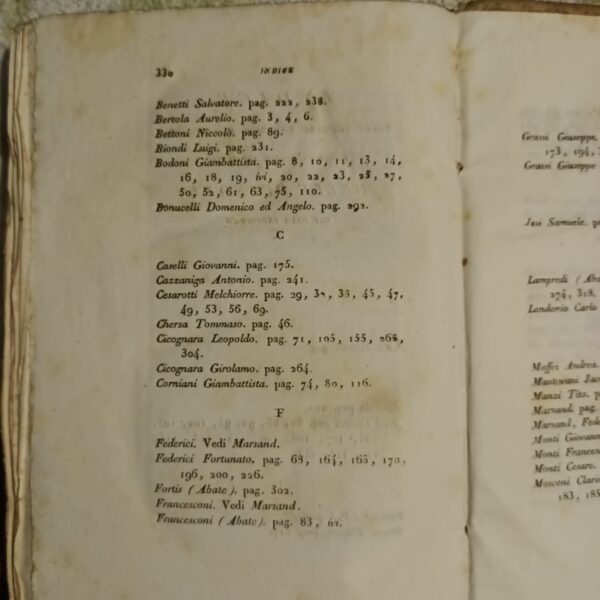 330
INDICE
Benetti Salvatore. pag. 222, 238.
Bertola Aurelio. pag. 3, 4, 6.
Bettoni Niccolò. pag. 89.
Biondi Luigi. pag. 231.
Bodoni Giambattista. pag. 8, 10, 11, 13, 14,
16, 18, 19, ivi, 20, 22, 23, 25, 27,
50, 52, 61, 63, 75, 110.
Bonucelli Domenico ed Angelo. pag. 292.
C
Caselli Giovanni. pag. 175.
Cazzaniga Antonio. pag. 241.
Cesarotti Melchiorre. pag. 29, 32, 38, 45, 47,
49, 53, 56, 69.
Chersa Tommaso. pag. 46.
Cicognara Leopoldo. pag. 71, 105, 155, 268,
304.
Cicognara Girolamo. pag. 264.
Corniani Giambattista. pag. 74, 80, 116.
F
Federici. Vedi Marsand.
Federici Fortunato. pag. 68, 164, 165, 170,
196, 200, 226.
Fortis (Abate). pag. 302.
Francesconi. Vedi Marsand.
Francesconi (Abate). pag. 83, ivi.
Grassi Giuseppe.
173, 194,
Grassi Giuseppe
Jesi Samuele.
Lampredi
274, 318.
Londonio Carlo
Maffei Andrea.
Mantovani
Manzi Tito.
Marsand. pag.
Marsand,
Monti
Monti
Monti Cesare.
Mosconi
183, 185